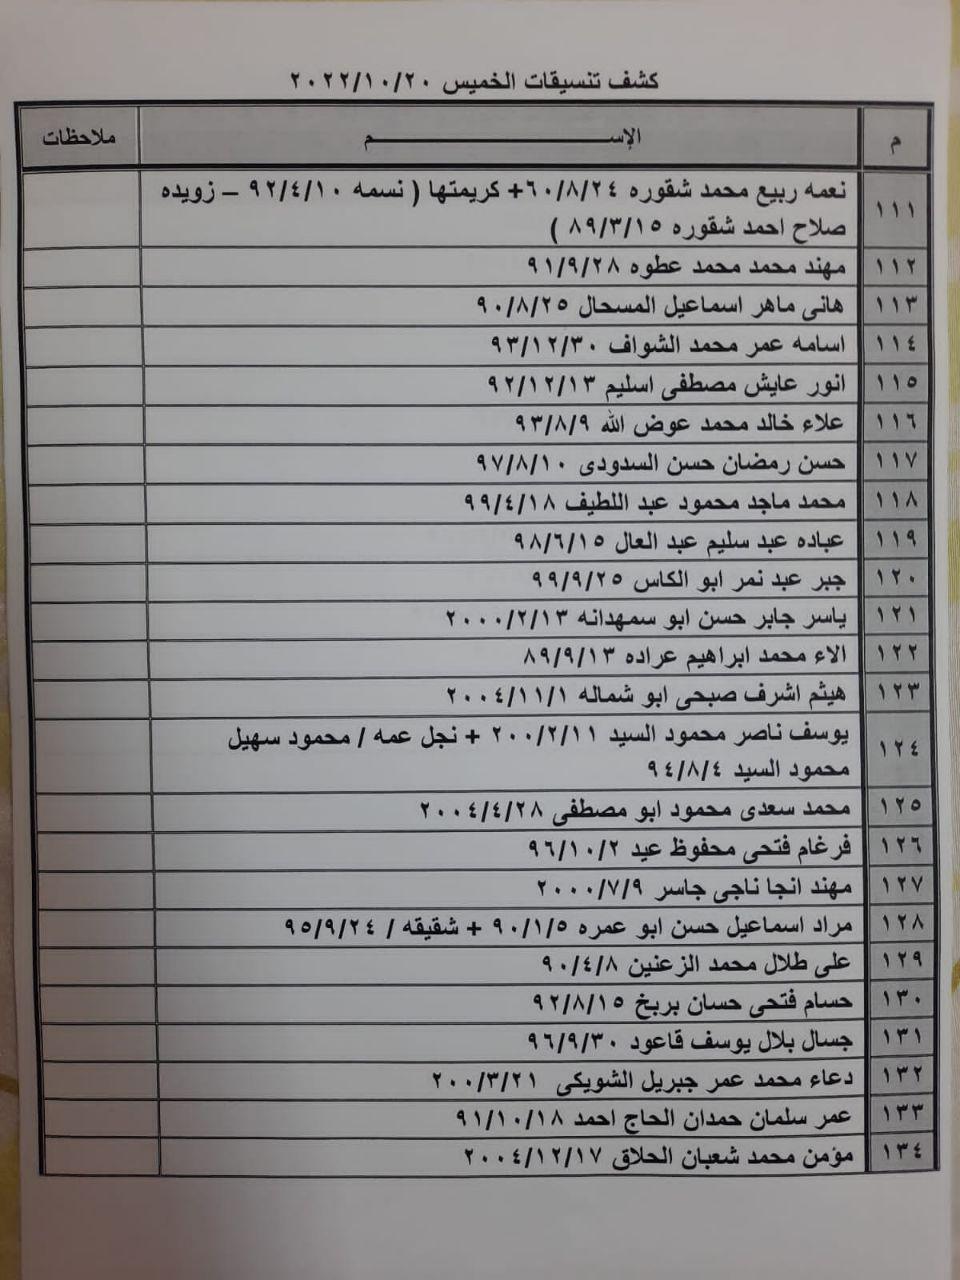 كشف تنسيقات الخميس ٢٠٢٢/١٠/٢٠
م الإســـــــــــــــــــم ملاحظات
١١١ نعمه ربيع محمد شقوره ٦٠/٨/٢٤+ كريمتها ( نسمه ٩٢/٤/١٠ – زويده
صلاح احمد شقوره ٨٩/٣/١٥ )
١١٢ مهند محمد محمد عطوه ٩١/٩/٢٨
١١٣ هانى ماهر اسماعيل المسحال ٩٠/٨/٢٥
١١٤ اسامه عمر محمد الشواف ٩٣/١٢/٣٠
١١٥ انور عايش مصطفى اسليم ٩٢/١٢/١٣
١١٦ علاء خالد محمد عوض الله ٩٣/٨/٩
١١٧ حسن رمضان حسن السدودى ٩٧/٨/١٠
١١٨ محمد ماجد محمود عبد اللطيف ٩٩/٤/١٨
١١٩ عباده عبد سليم عبد العال ٩٨/٦/١٥
١٢٠ جبر عبد نمر ابو الكاس ٩٩/٩/٢٥
١٢١ ياسر جابر حسن ابو سمهدانه ٢٠٠٠/٢/١٣
١٢٢ الاء محمد ابراهيم عراده ٨٩/٩/١٣
١٢٣ هيثم اشرف صبحى ابو شماله ٢٠٠٤/١١/١
١٢٤ يوسف ناصر محمود السيد ٢٠٠/٢/١١ + نجل عمه / محمود سهيل
محمود السيد ٩٤/٨/٤
١٢٥ محمد سعدى محمود ابو مصطفى ٢٠٠٤/٤/٢٨
١٢٦ فرغام فتحى محفوظ عيد ٩٦/١٠/٢
١٢٧ مهند انجا ناجى جاسر ٢٠٠٠/٧/٩
١٢٨ مراد اسماعيل حسن ابو عمره ٩٠/١/٥ + شقيقه / ٩٥/٩/٢٤
١٢٩ على طلال محمد الزعنين ٩٠/٤/٨
١٣٠ حسام فتحى حسان بربخ ٩٢/٨/١٥
١٣١ جسال بلال يوسف قاعود ٩٦/٩/٣٠
١٣٢ دعاء محمد عمر جبريل الشويكى ٢٠٠/٣/٢١
١٣٣ عمر سلمان حمدان الحاج احمد ٩١/١٠/١٨
١٣٤ مؤمن محمد شعبان الحلاق ٢٠٠٤/١٢/١٧